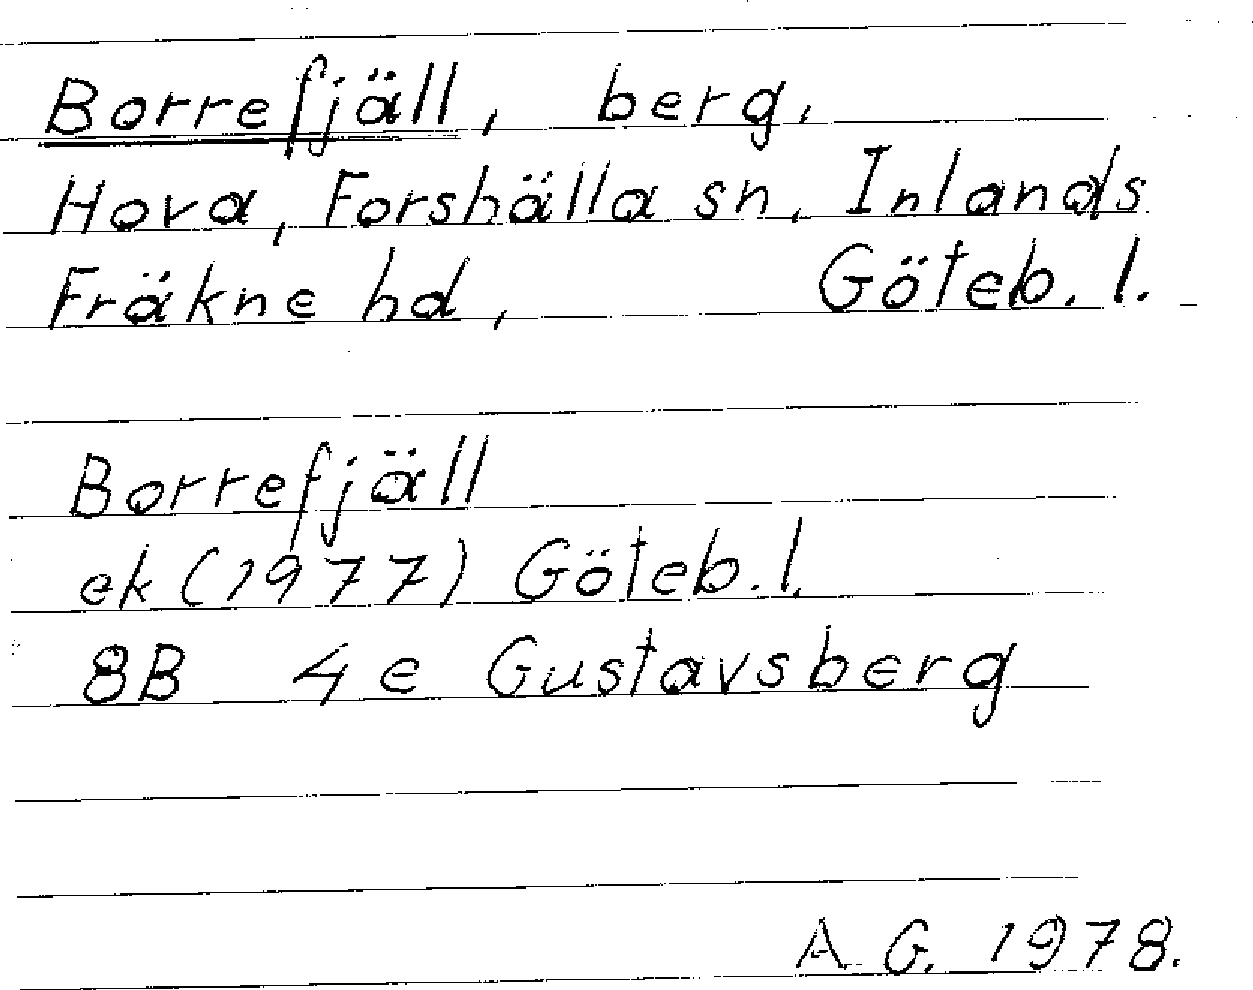 Borrefjäll, berg,
Hova, Forshälla sn, Inlands
Fräkne hd, Göteb. l.
Borrefjäll
ek (1977) Göteb. l.
8B 4e Gustavsberg
A G. 1978.